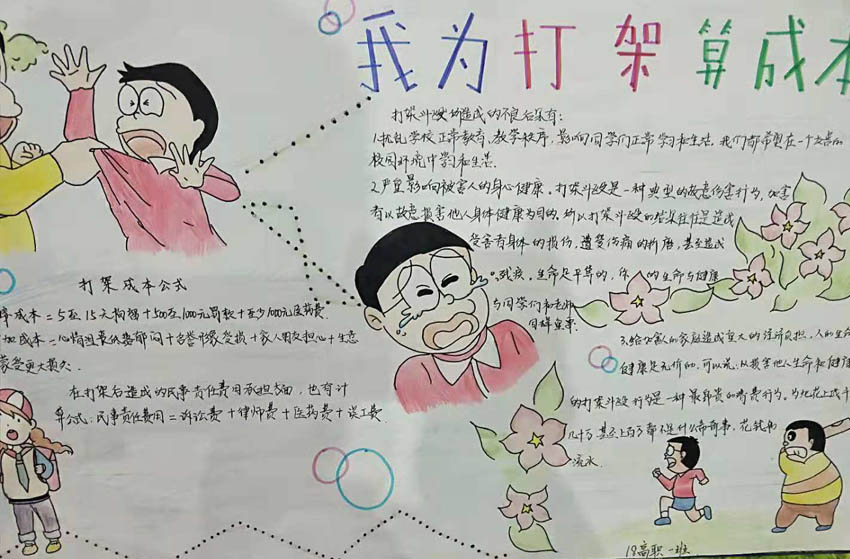 我为打架算成本
打架斗殴所造成的不良后果有:
1.扰乱学校正常教育、教学秩序,影响同学们正常学习和生活。我们都希望在一个友善的
校园环境中学习和生活。
2.严重影响被害人的身心健康。打架斗殴是一种典型的故意伤害行为,加害
者以故意损害他人身体健康为目的,所以打架斗殴的结果往往是造成
受害者身体的损伤,遭受伤痛的折磨,甚至造成
残疾,生命是平等的,你 的生命与健康
与同学们和老师
同样重要。
3.给加害人的家庭造成重大的经济负担,人的生命
健康是无价的,可以说,从损害他人生命和健康
的打架斗殴行为是一种最昂贵的消费行为。为此花上成千
几十万甚至上百万都不是什么稀奇事,花钱如
流水。
打架成本公式
成本=5至15天拘留+500至1000元罚款+至少1000元医药费
加成本=心情沮丧低落郁闷+名誉形象受损+家人朋友担心+生意
蒙受更大损失。
在打架后造成的民事责任费用承担方面,也有计
算公式:民事责任费用=诉讼费+律师费+医药费+误工费
18高职一班